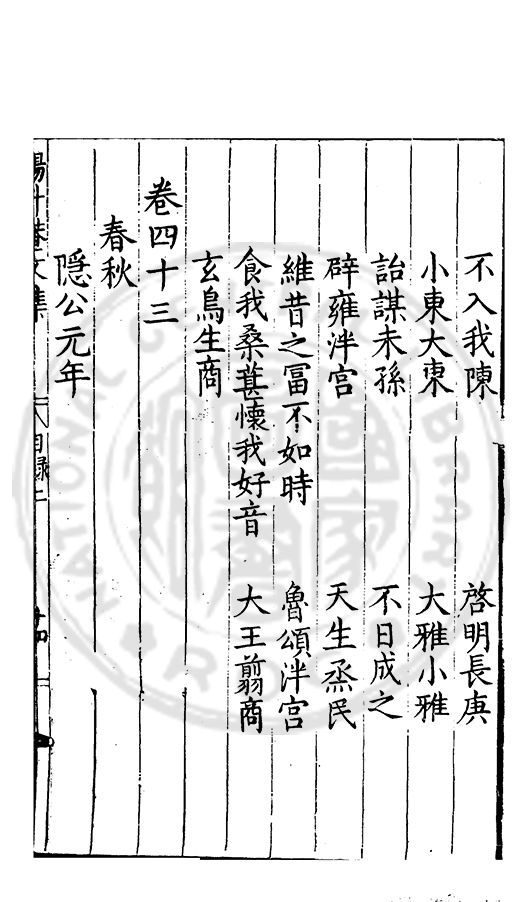 不入我陳　啓明長庚
小東大東　大雅小雅
詒謀未孫　不日成之
辟雍泮宮　天生烝民
維昔之富不如時　魯頌泮宮
食我桑葚懷我好音　大王翦商
玄鳥生商
卷四十三
春秋
隱公元年
目錄